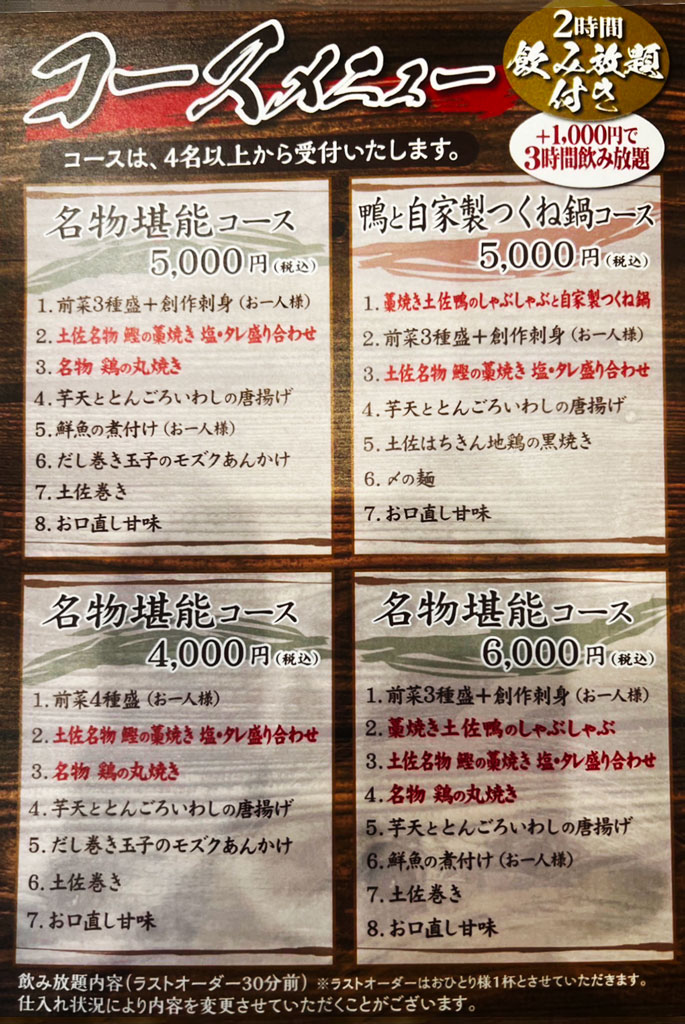 コースメニュー
2時間
飲み放題
付き
+1,000円で
3時間飲み放題
コースは、4名以上から受付いたします。
名物堪能コース
5,000円(税込)
1.前菜3種盛+創作刺身(お一人様)
2.土佐名物 鰹の藁焼き 塩・タレ盛り合わせ
3.名物 鶏の丸焼き
4.芋天ととんごろいわしの唐揚げ
5.鮮魚の煮付け(お一人様)
6.だし巻き玉子のモズクあんかけ
7.土佐巻き
8.お口直し甘味
鴨と自家製つくね鍋コース
5,000円(税込)
1.藁焼き土佐鴨のしゃぶしゃぶと自家製つくね鍋
2.前菜3種盛+創作刺身(お一人様)
3.土佐名物 鰹の藁焼き 塩・タレ盛り合わせ
4.芋天ととんごろいわしの唐揚げ
5.土佐はちきん地鶏の黒焼き
6.〆の麺
7.お口直し甘味
名物堪能コース
4,000円(税込)
1.前菜4種盛(お一人様)
2.土佐名物 鰹の藁焼き 塩・タレ盛り合わせ
3.名物 鶏の丸焼き
4.芋天ととんごろいわしの唐揚げ
5.だし巻き玉子のモズクあんかけ
6.土佐巻き
7.お口直し甘味
名物堪能コース
6,000円(税込)
1.前菜3種盛+創作刺身(お一人様)
2.藁焼き土佐鴨のしゃぶしゃぶ
3.土佐名物 鰹の藁焼き 塩・タレ盛り合わせ
4.名物 鶏の丸焼き
5.芋天ととんごろいわしの唐揚げ
6.鮮魚の煮付け(お一人様)
7.土佐巻き
8.お口直し甘味
飲み放題内容(ラストオーダー30分前) ※ラストオーダーはおひとり様1杯とさせていただきます。
仕入れ状況により内容を変更させていただくことがございます。